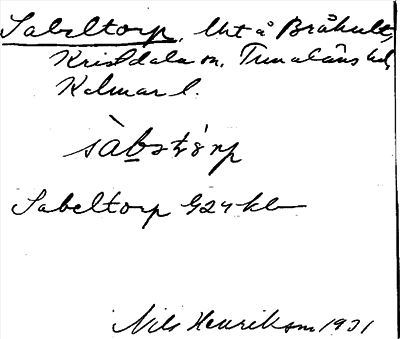 Sabeltorp, Uht å Bråhult,
Kristdala sn, Tunaläns hd,
Kalmar l.
sàbstórp
Sabeltorp G24 kb
Nils Henriksson 1931